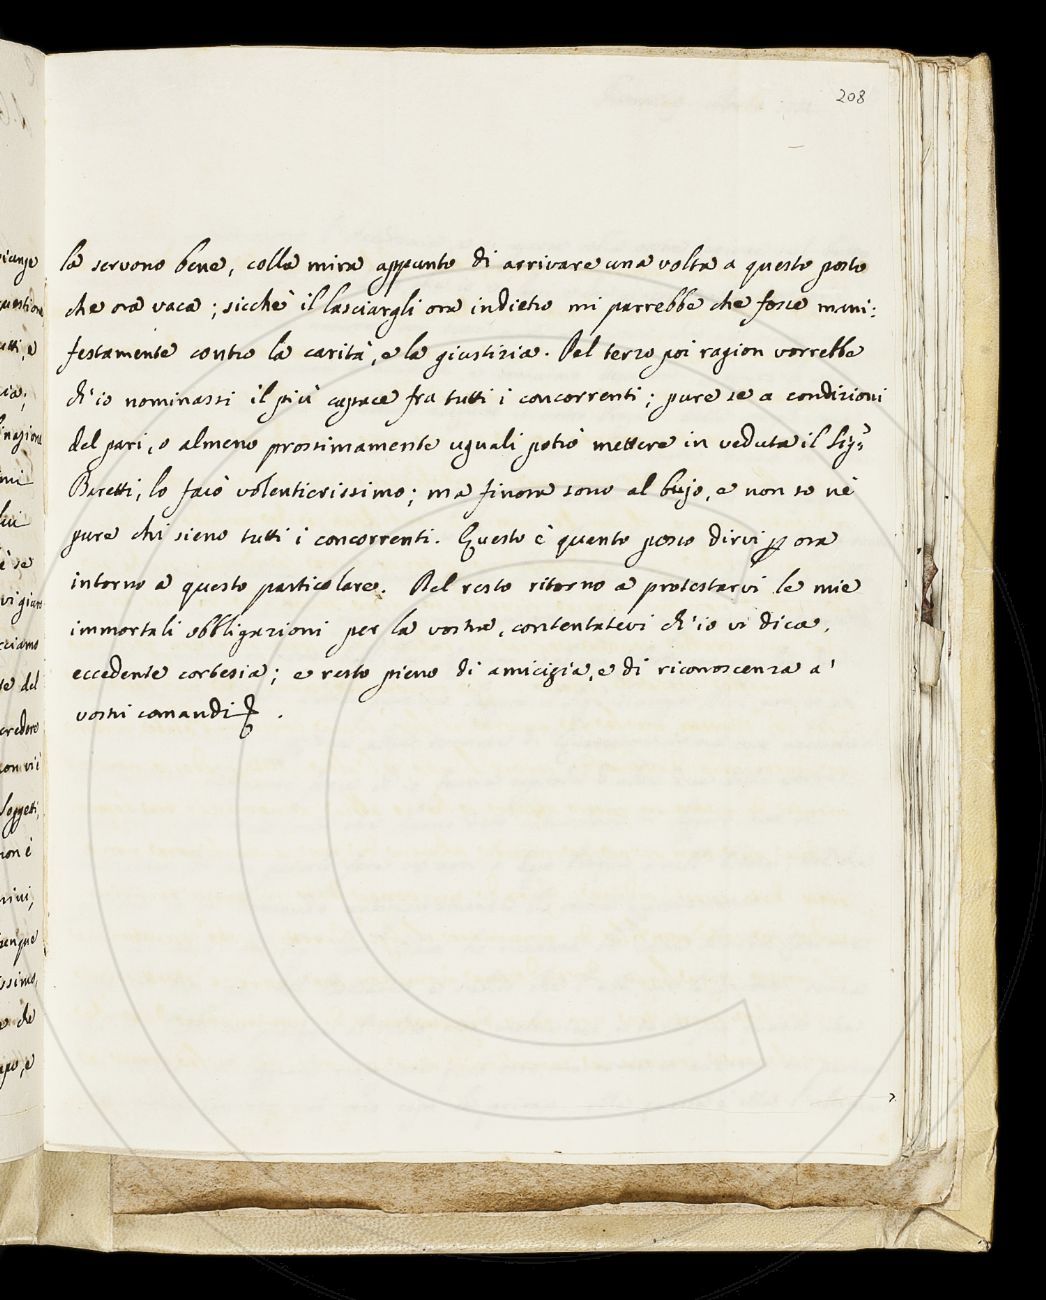 208
la servono bene, colla mira appunto di arrivare una volta a questo posto
che ora vaca; sicchè il lasciargli ora indietro mi parrebbe che fosse mani:
festamente contro la carità, e la giustizia. Del terzo poi ragion vorrebbe
ch'io nominassi il più capace fra tutti i concorrenti; pure se a condizioni
del pari, o almeno prossimamente uguali potrò mettere in veduta il Sig.r
Baretti, lo farò volentierissimo; ma finora sono al bujo, e non so nè
pure chi sieno tutti i concorrenti. Questo è quanto posso dirvi p ora
intorno a questo particolare. Del resto ritorno a protestarvi le mie
immortali obbligazioni per la vostra, contentatevi ch'io vi dica,
eccedente cortesia; e resto pieno di amicizia, e di riconoscenza a'
vostri comandi